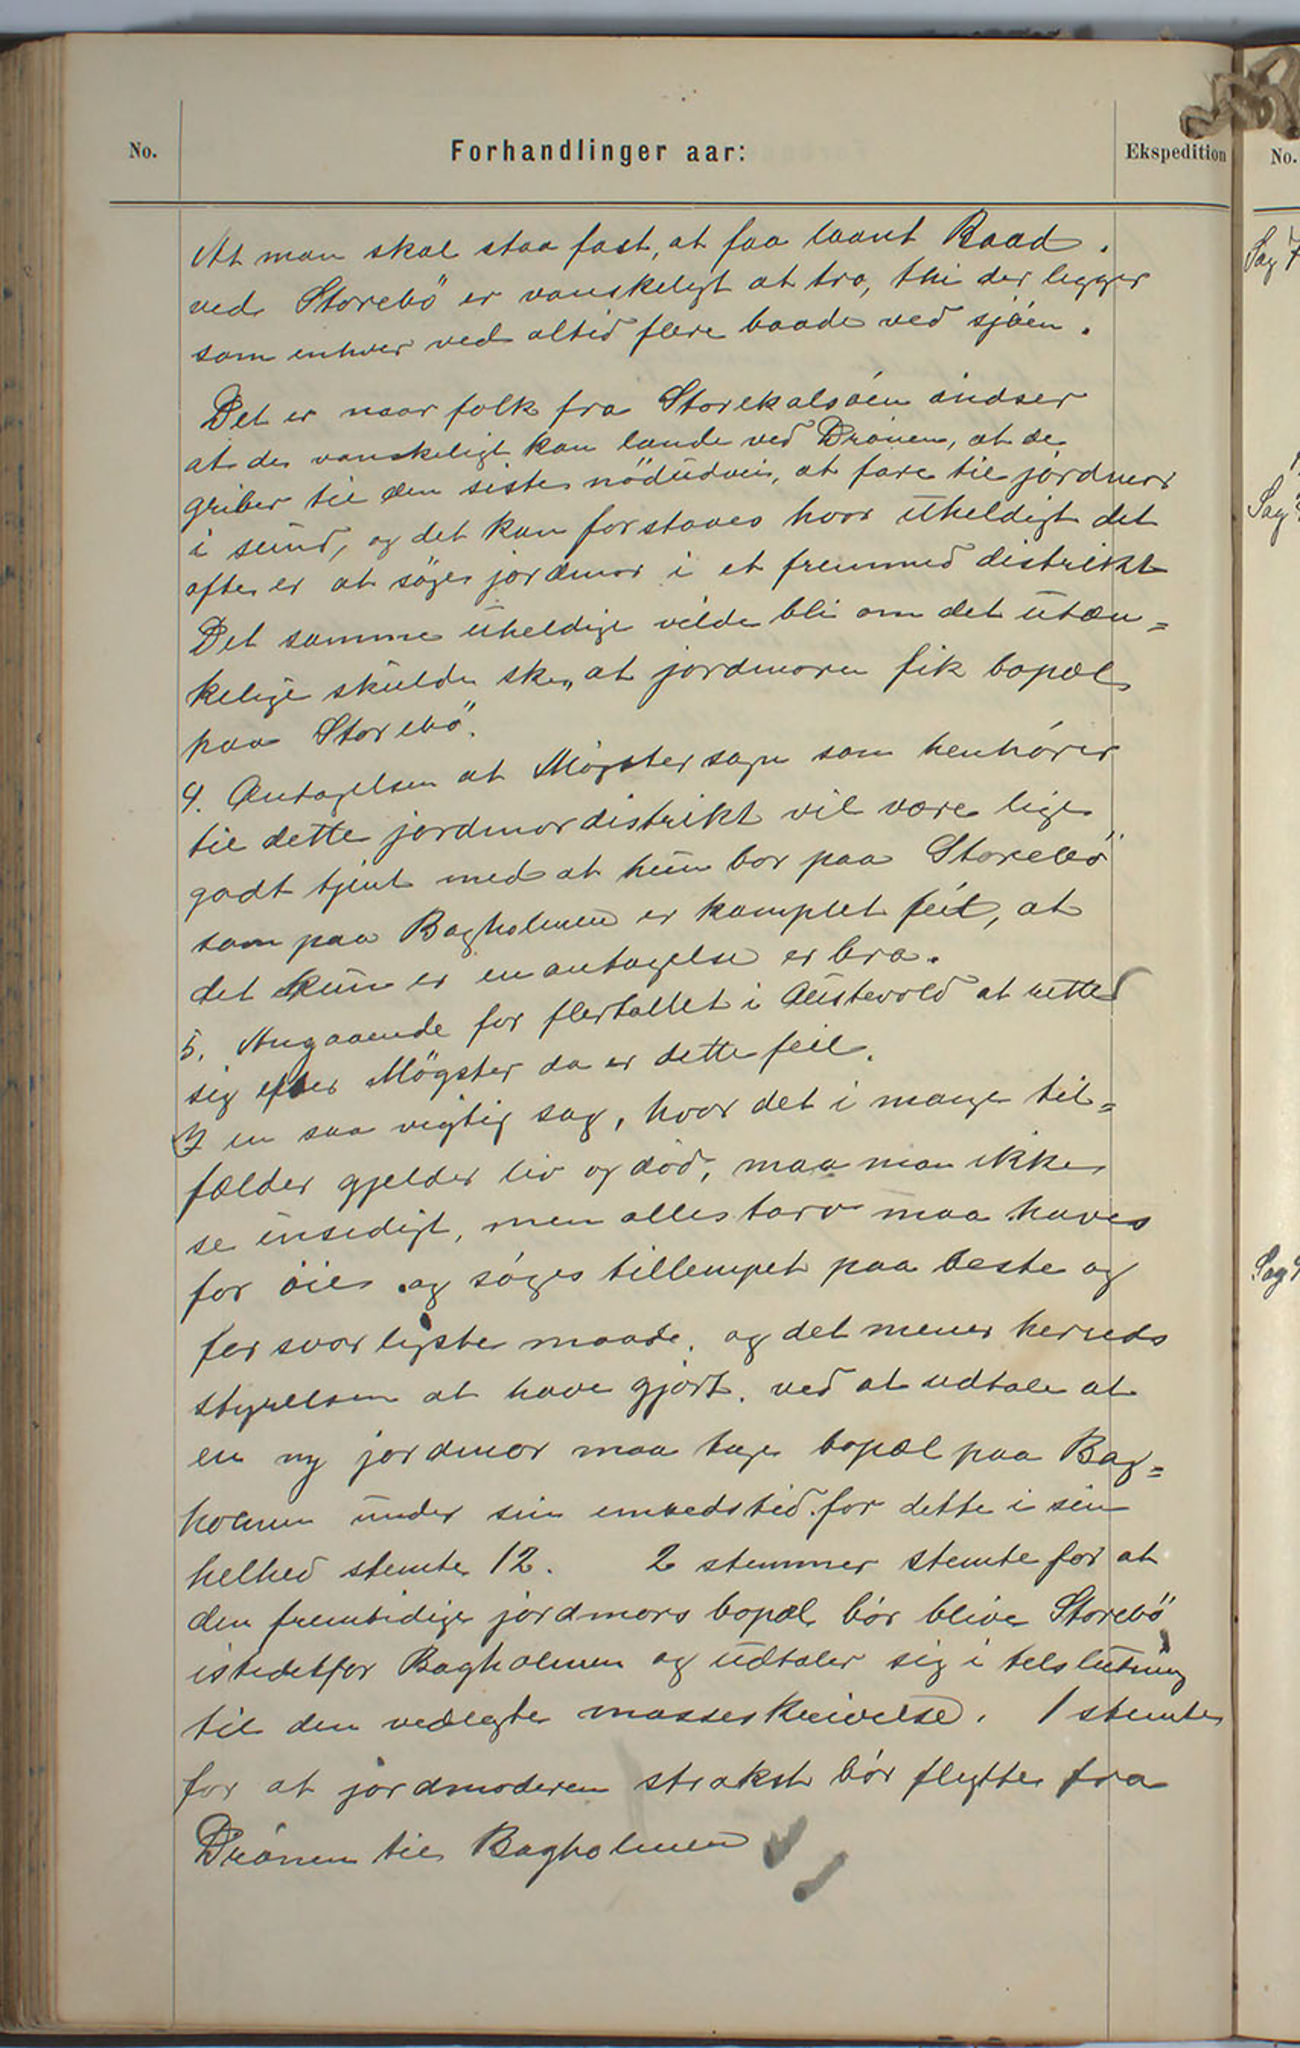 No.
Forhandlinger aar:
Ekspedition
No.
At man skal staa fast, at faa laant Baad.
ved Storebö er vanskeligt at tro, thi der ligger
som enhver ved altid flere baade ved sjöen.
Det er naar folk fra Storekalsöen indser
at de vanskeligt kan lande ved Drönen, at de
griber til den siste nödudvei, at fare til jordmor
i sund, og det kan forstaaes hvor uheldigt det
ofte er at söge jordmor i et fremmed distrikt
Det samme uheldige vilde bli om det utæn=
kelige skulde ske, at jordmoren fik bopæl
paa Storebö.
4. Antagelsen at Mögster sogn som henhörer
til dette jordmordistrikt vil være lige
godt tjent med at hun bor paa Storebö
som paa Bagholmen er komplet feil, at
det kun er en antagelse er bra.
5. Angaaende for flertallet i Austevold at rette
sig efter Mögster da er dette feil.
I en saa vigtig sag, hvor det i mange til=
fælder gjelder liv og död, maa man ikke
se ensidigt, men alles tarv maa haves
for öie og söges tillempet paa beste og
forsvarligste maade. og det mener herreds
styrelsen at have gjört. ved at udtale at
en ny jordmor maa tage bopæl paa Bag=
holmen under sin embedstid. for dette i sin
helhed stemte 12. 2 stemmer stemte for at
den fremtidige jordmors bopæl bör blive Storebö
istedetfor Bagholmen og udtaler sig i telslutning
til den vedlegte masseskrivelse. 1 stemte
for at jordmoderen strakst bör flytte fra
Drönen til Bagholmen
Sag 7
Sag
Sag 9